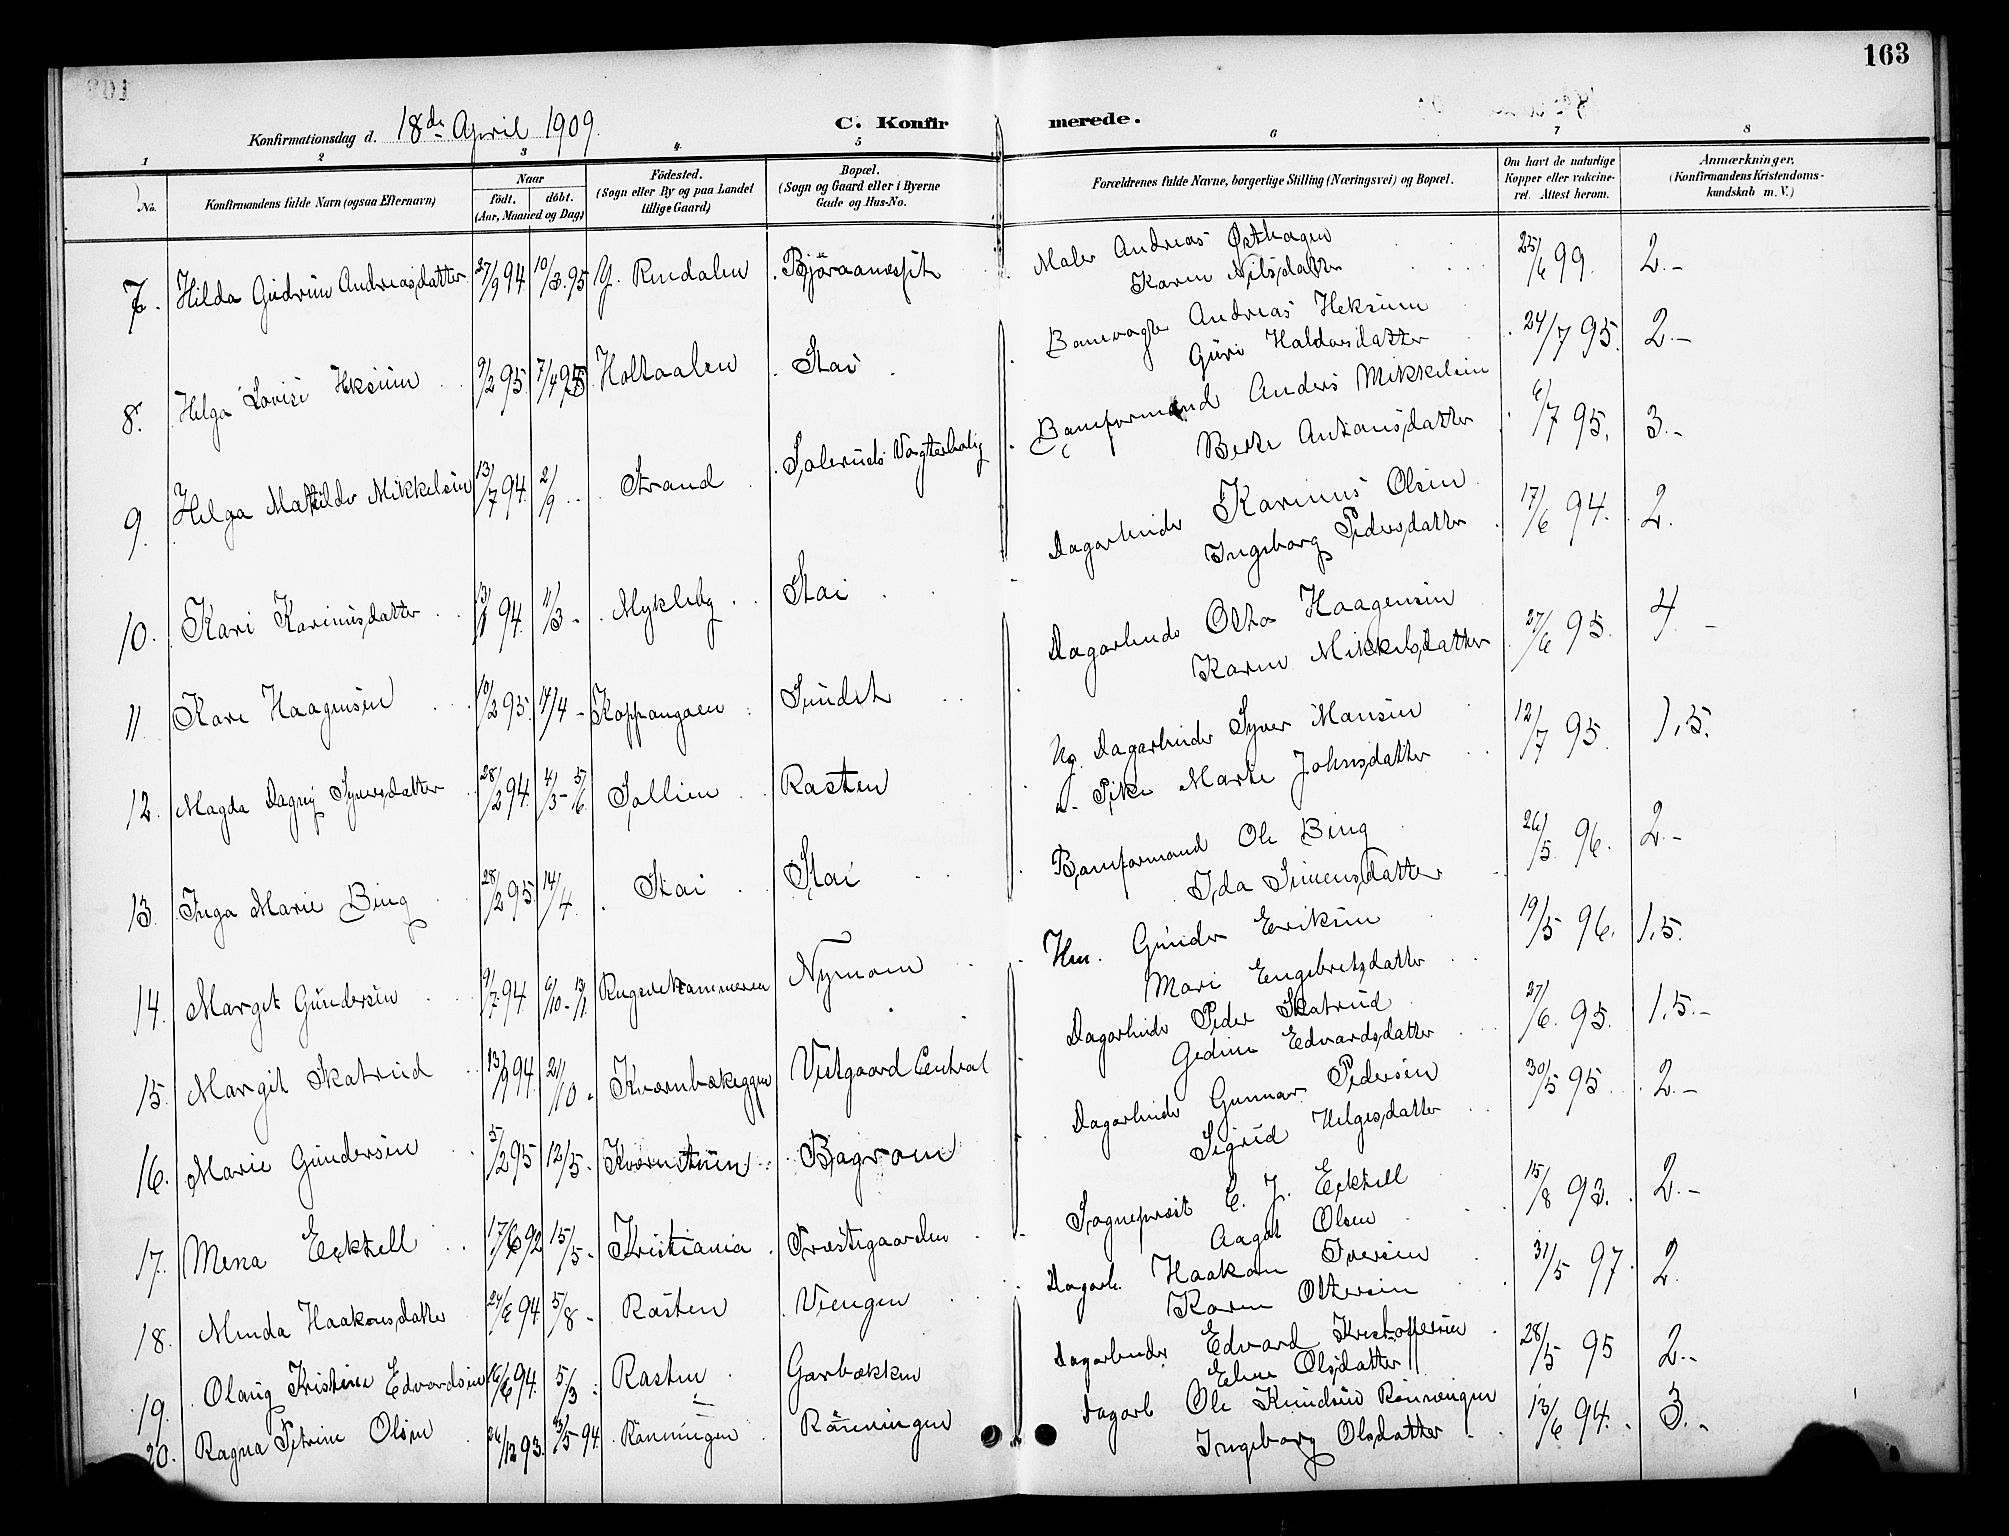 163
Konfirmationsdag d. 18de April 1909.
C. Konfirmerede.
1 2 3 4 5 6 7 8
No.
Konfirmandens fulde Navn (ogsaa Efternavn)
Naar
födt. döbt.
(Aar, Maaned og Dag)
Födested.
(Sogn eller By og paa Landet
tillige Gaard)
Bopæl.
(Sogn og Gaard eller i Byerne
Gade og Hus-No.
Forældrenes fulde Navne, borgerlige Stilling (Næringsvei) og Bopæl.
Om havt de naturlige
Kopper eller vakcine-
ret. Attest herom.
Anmærkninger.
(Konfirmandens Kristendoms-
kundskab m. V.)
7. Hilda Gudrun Andreasdatter 27/9 94 10/3 95 Y. Rendalen Björaanesset Maler Andreas Østhagen 25/6 99. 2.-
Karen Nilsdatter
8. Helga Lovise Heksum 9/2 95. 7/4 95 Holtaalen Stai Banevogter Andreas Heksum 24/7 95. 2.-
Guri Haldorsdatter
9. Helga Mathilde Mikkelsen 13/7 94. 2/9 Strand Soleruds Vogterbolig Baneformand Anders Mikkelsen 6/7 95. 3.-
Berte Antonsdatter
10. Kari Karinusdatter 94. 11/3 - Mykleby Stai Dagarbeider Karinus Olsen 17/6 94. 2.
Ingeborg Pedersdatter
11 Kare Haagensen 10/2 95. 14/4 - Koppangaen Sundet Dagarbeider Otto Haagensen 27/6 95. 4 -
Karen Mikkelsdatter
12. Magda Dagny Syversdatter 28/2 94. 4/3 - 5/6 Sollien Rasten Ug. Dagarbeider Syver Hansen 12/7 95. 1,5.
Pike Marte Johnsdatter
13. Inga Marie Bing 28/2 95. 14/4 Stai Stai Baneformand Ole Bing 26/5 96. 2.-
Ida Simensdatter
14. Margit Gundersen 9/7 94 6/10 - Rugsvekammeren Nymoen Hm. Gunder Eriksen 19/5 96. 1,5.
Mari Engebretsdatter
15. Margit Skatrud 13/9 94. 21/10 - Kværnbækeggen Vestgaard Central Dagarbeider Peder Skatrud 27/6 95. 1,5.-
Gedine Edvardsdatter
16. Marie Gundersen 5/2 95 12/5 - Kværnstuen Bagrom Dagarbeider Gunnar Pedersen 30/5 95. 2.-
Sigrid Helgesdatter
17. Mena Ecktell 17/6 92 15/5 - Kristiania Præstegaarden Sogneprest C. J. Ecktell 15/8 93. 2.-
Aagot Olsen
18. Minda Haakonsdatter 24/6 94. 5/8 - Rasten Viengen Dagarb. Haakon Iversen 31/5 97. 2.
Karen Ottersen
19. Olaug Kristine Edvardsen 16/6 94. 5/3 Rasten Garbækken Dagarbeider Edvard Kristoffersen 28/5 95 2.-
Eline Olsdatter
20. Ragna Petrine Olsen 26/12 93. 13/5 94. Rönningen Rönningen Dagarb Ole Knudsen Rönningen 13/6 94. 3.-
Ingeborg Olsdatter